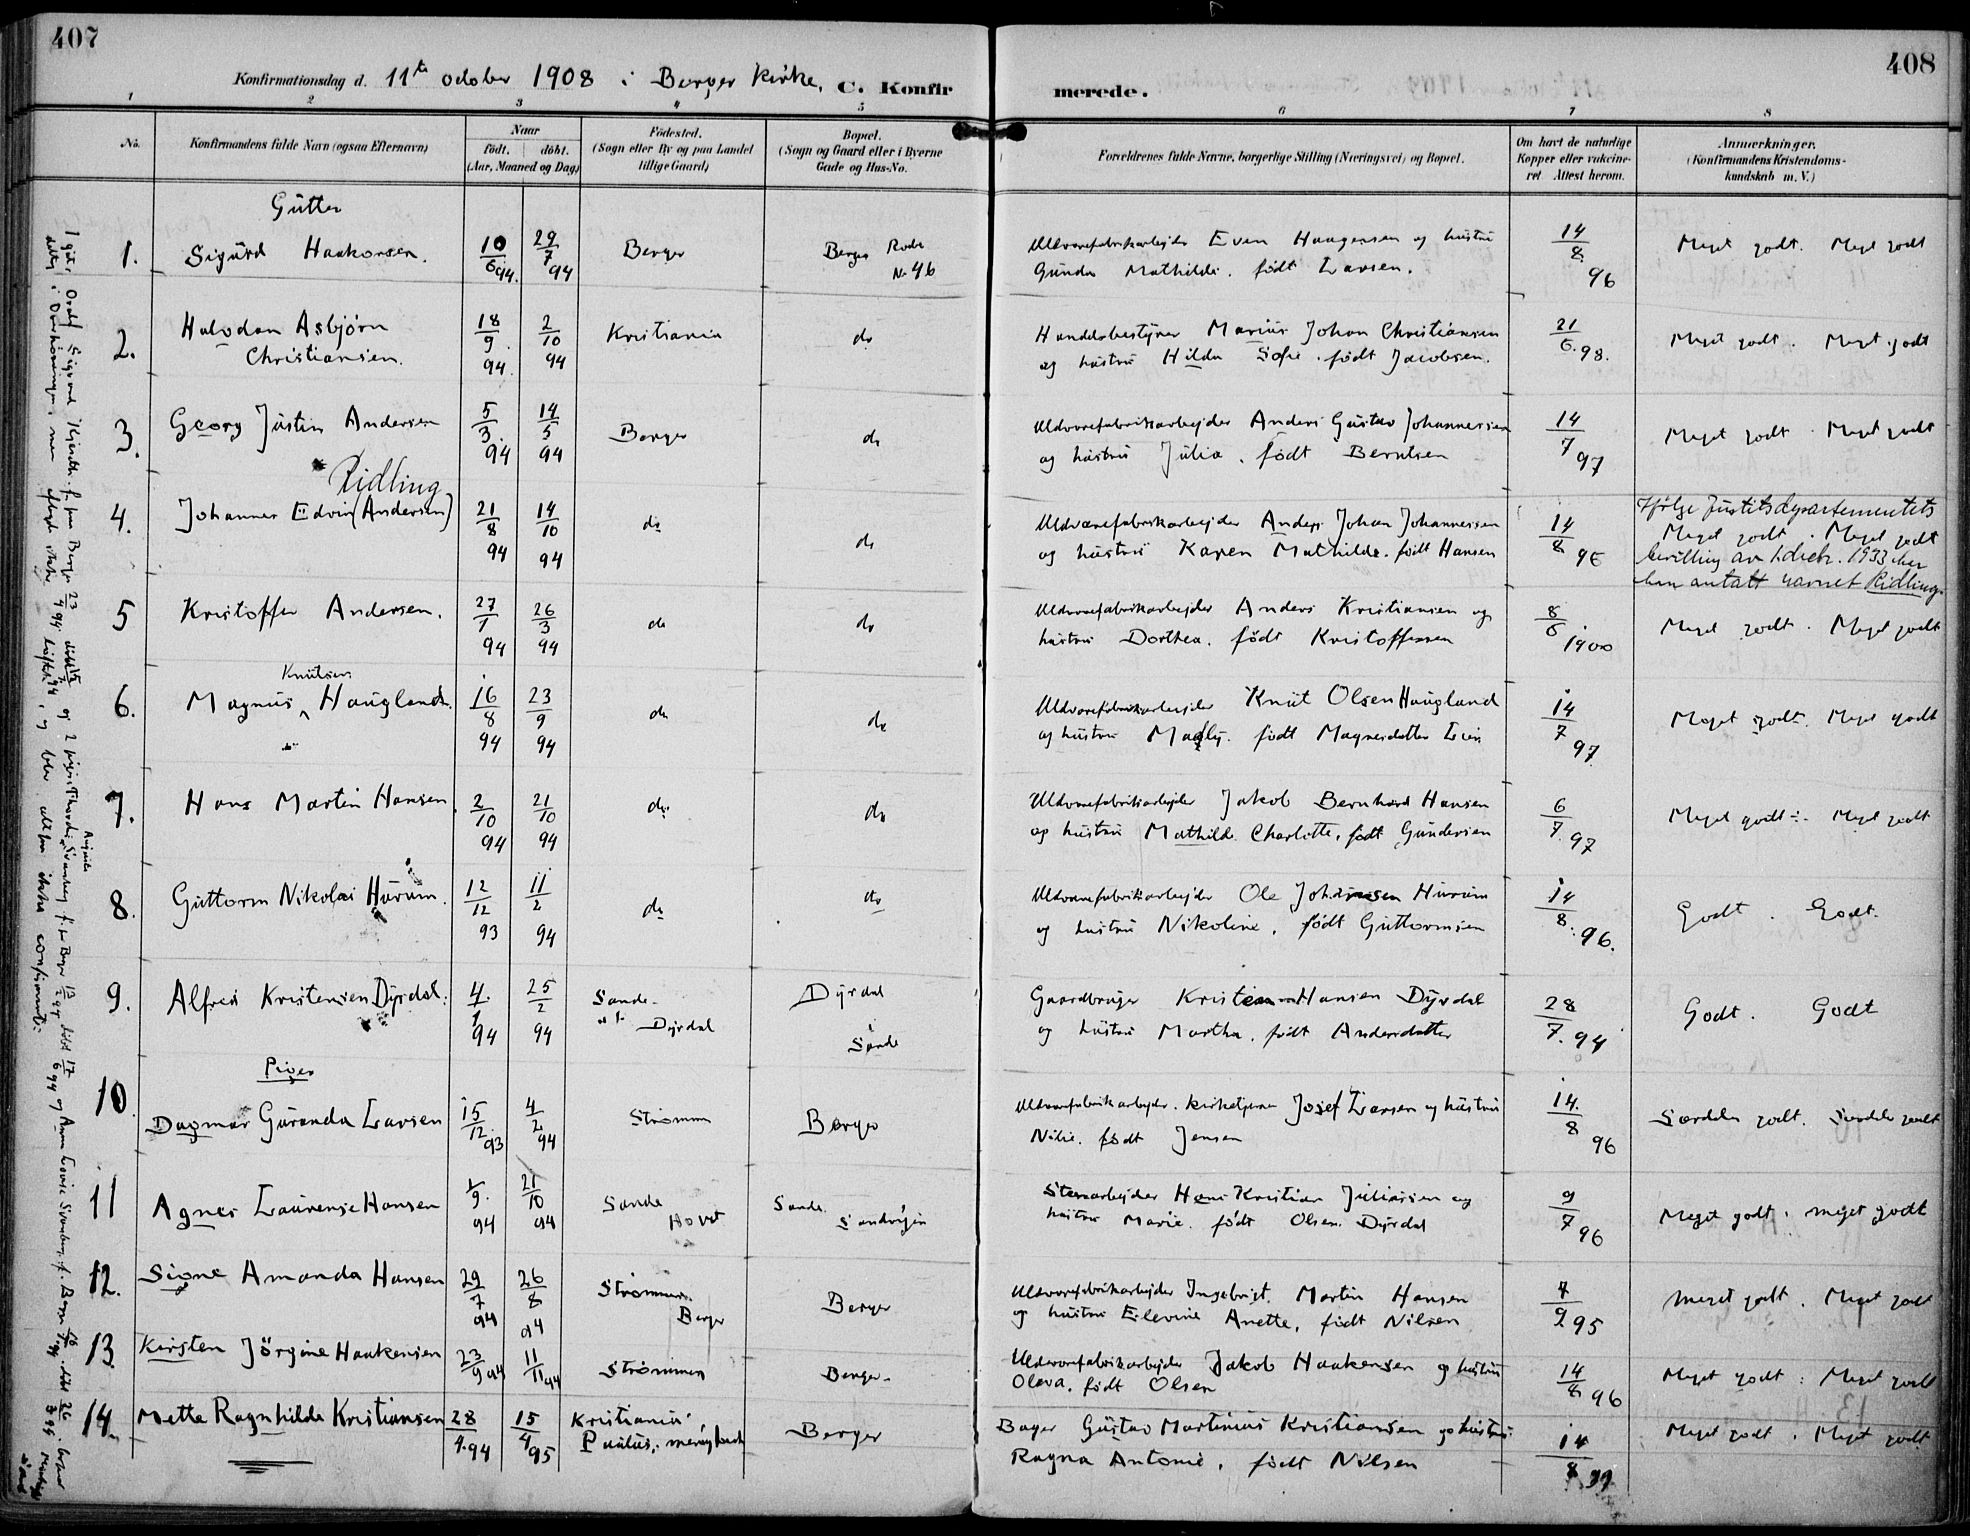 407
408
Konfirmationsdag d. 11te october 1908 i Berger kirke. C. Konfir merede.
1 2 3 4 5 6 7 8
No. Konfirmandens fulde Navn (ogsaa Efternavn) Naar Födested. Bopæl. Forældrenes fulde Navne, borgerlige Stilling (Næringsvei) og Bopæl. Om havt de naturlige Anmærkninger.
födt. döbt. (Sogn eller By og paa Landet (Sogn og Gaard eller i Byerne Kopper eller vakcine- (Konfirmandens Kristendoms-
(Aar, Maaned og Dag) tillige Gaard) Gade og Hus-No. ret Attest herom. kundskab m. V.)
Gutter
1. Sigurd Haakonsen. 10/6 94. 29/7 94 Berger Berger Rode No 46 Uldvarefabrikarbejder Even Haagensen og hustru 14/8 96 Meget godt. Meget godt
Gunda Mathilde. født Larsen.
2. Halvdan Asbjørn 18/9 94. 2/10 94 Kristiania do Handelsbestyrer Marius Johan Christiansen 21/6. 98. Meget godt. Meget godt
Christiansen. og hustru Hilda Sofie. født Jacobsen.
3. Georg Justin Andersen 5/3. 94 14/5 94 Berger do Uldvarefabrikarbejder Anders Gustav Johannessen 14/7 97 Meget godt. Meget godt
og hustru Julia. født Berntsen
Ridling
4. Johannes Edvin (Andersen) 21/8 94 14/10 94 do do Uldvarefabrikarbejder Anders Johan Johannessen 14/8 96 Ifølge Justitsdepartementets
og hustru Karen Mathilde. født Hansen Meget godt. Meget godt
bevilling av 1. decbr. 1933 har
han antatt navnet Ridling.
5 Kristoffer Andersen. 27/1 94 26/3 94 do do Uldvarefabrikarbejder Anders Kristiansen og 8/6 1900 Meget godt. Meget godt
hustru Dorthea. født Kristoffersen
Knutsen
6. Magnus Haugland. 16/8 94 23/9 94 do do Uldvarefabrikarbejder Knut Olsen Haugland 14/7 97 Meget godt. Meget godt
og hustru født Magnesdatter
7. Hans Martin Hansen. 2/10 94 21/10 94 do. do Uldvarefabrikarbejder Jakob Bernhard Hansen 6/7. 97 Meget godt ÷. Meget godt
og hustru Mathilde Charlotte, født Gundersen
8. Guttorm Nikolai Hurum. 12/12 93 11/2 94 do do Uldvarefabrikarbejder Ole Johansen Hurum 14/8. 96. Godt. Godt.
og hustru Nikoline, født Guttormsen
9. Alfred Kristensen Dyrdal. 4/1 94 25/2 94 Sande Dyrdal Dyrdal Sande Gaardbruger Kristen Hansen Dyrdal 28/7. 94 Godt. Godt
og hustru Martha. født Andersdatter
Piger
10. Dagmar Guranda Larsen 15/12. 93 4/2 94 Strømm Berger Uldvarefabrikarbejder. kirketjener Josef Larsen og hustru 14/8 96 Særdeles godt. Særdeles godt
født Jensen
11 Agnes Laurense Hansen 1/9. 94 21/10 94 Sande Hovet Sande. Sandvigen Stenarbejder Hans Kristian Juliussen og 9/7 96 Meget godt. meget godt
hustru Marie. født Olsen Dyrdal
12. Signe Amanda Hansen 29/7 94 26/8 94 Strømmen. Berger Berger Uldvarefabrikarbejder Ingebrigt. Martin Hansen 7/9 95 Meget godt. Meget godt
og hustru Elevine Anette, født Nilsen
13. Kirsten Jörgine Haakensen 23/9 94 11/11 94 Strømmen Berger. Uldvarefabrikarbejder Jakob Haakensen og hustru 14/8 96 Meget godt. Meget godt
Oleva. født Olsen
14. Mette Ragnhilda Kristiansen 28/9. 94 15/4 95 Kristiania Paulus. menighed Berger Bager Gustav Martinius Kristiansen og hustru 14/8 99 Meget godt. Meget godt
Ragna Antonie, født Nilsen